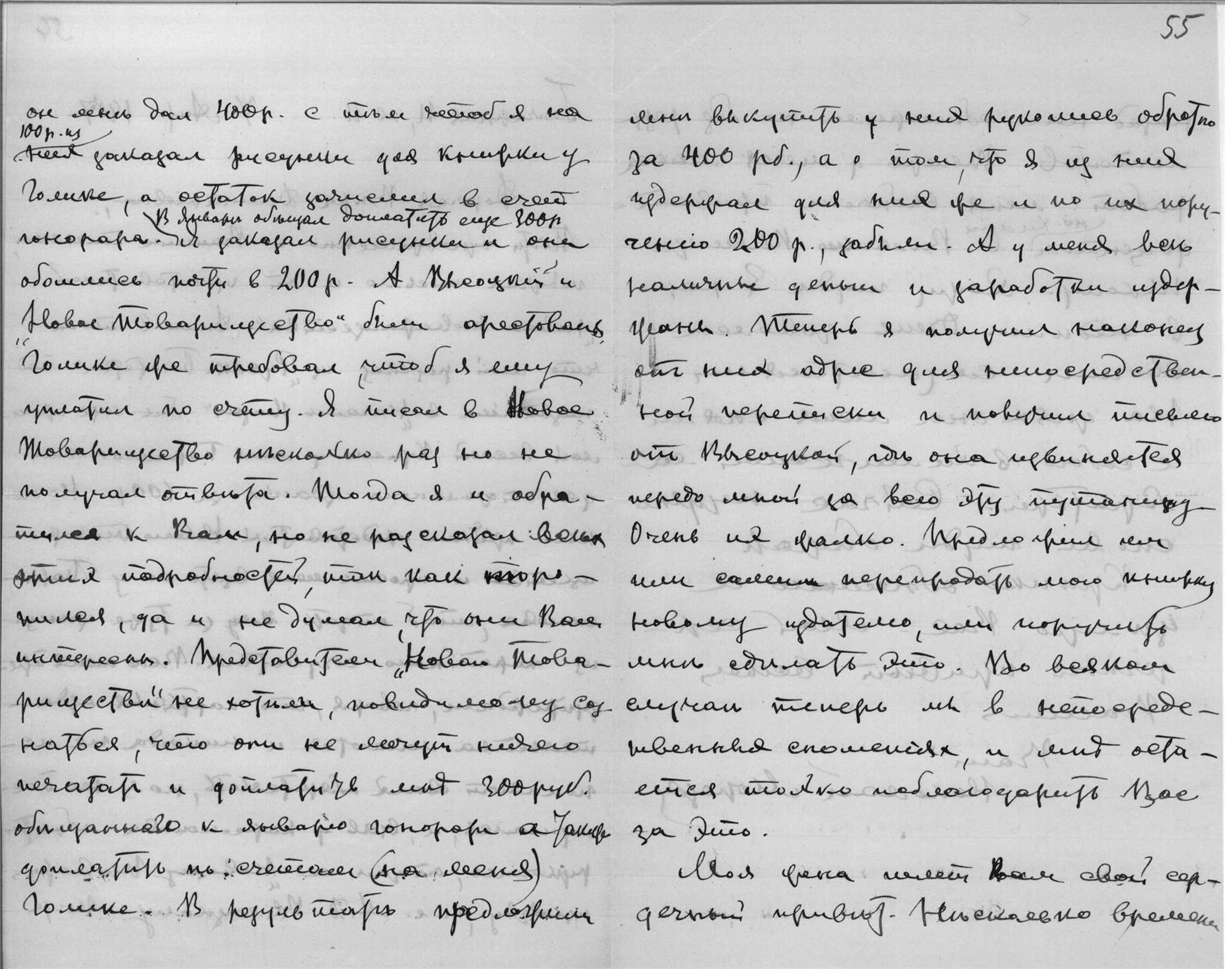 55
он мнѣ дал 400р. с тѣм чтоб я на
100р. из
них заказал рисунки для книжки у
Голике, а остаток зачислил в счет
В январѣ обѣщал доплатить еще 300р
гонорара. Я заказал рисунки и они
обошлись почти в 200р. А Высоцкий и
„Новое Товарищество" были арестованы,
Голике же требовал, чтоб я ему
уплатил по счету. Я писал в Новое
Товарищество нѣсколько раз но не
получал отвѣта. Тогда я и обра-
тился к Вам, но не разсказал всѣх
этих подробностей, так как торо-
пился, да и не думал, что они Вам
интересны. Представители „Новаго Това-
рищества" не хотѣли, повидимому соз-
наться, что они не могут ничего
печатать и доплатить мнѣ 300руб.
обѣщаннаго к январю гонорара а также
доплатить по счетам (на меня)
Голике. В результатѣ предложили
мнѣ выкупить у них рукопись обратно
за 400 рб., а о том, что я из них
издержал для них же и по их пору-
чению 200 р., забыли. А у меня всѣ
наличные деньги и заработки издер-
жаны. Теперь я получил наконец
от них адрес для непосредствен-
ной переписки и получил письмо
от Высоцкой, гдѣ она извиняется
передо мной за всю эту путаницу
Очень их жалко. Предложил им
или самим перепродать мою книжку
новому издателю, или поручить
мнѣ сдѣлать это. Во всяком
случаѣ теперь мы в непосредс-
твенных сношениях, и мнѣ оста-
ется только поблагодарить Вас
за это.
Моя жена шлет Вам свой сер-
дечный привѣт. Нѣсколько времени